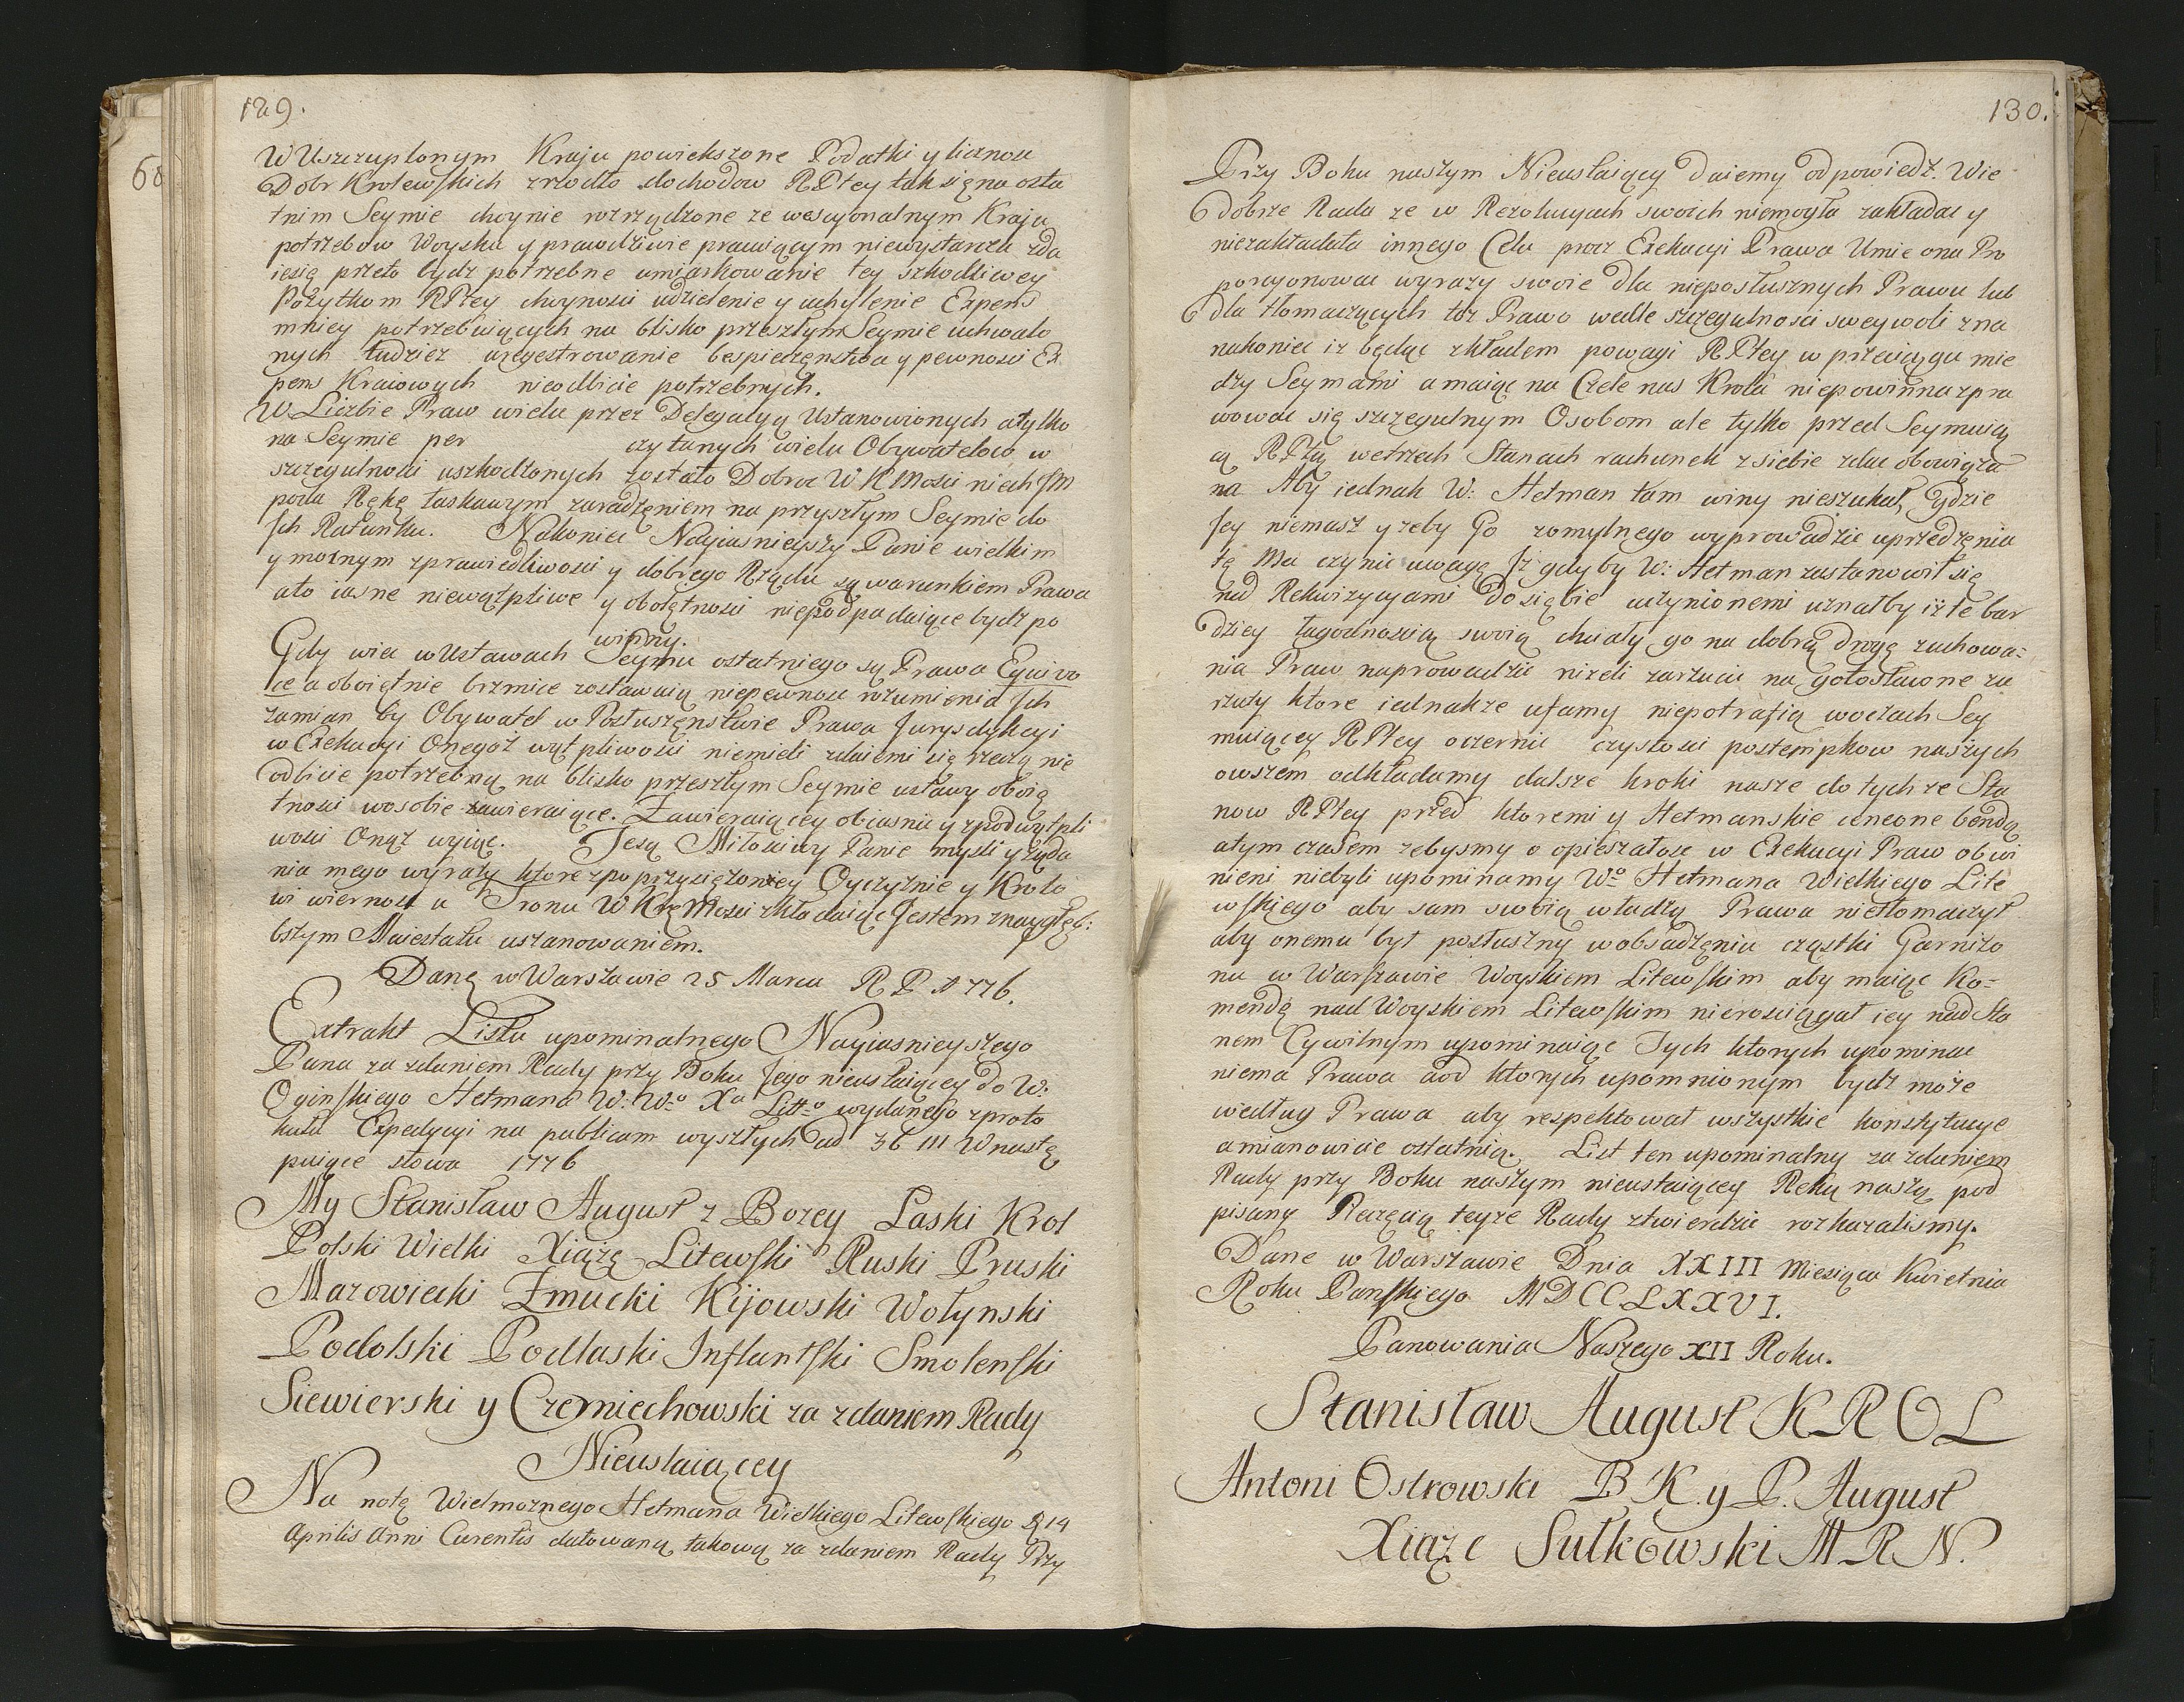 129.
68
W Uszczuplonym Kraju powiekszone Podatki y licznosc
Dobr Krolewskich zrzodło dochodow RPltey tak się na osta
tnim Seymie choynie rozrządzone ze wescyonalnym Kraju
potrzebow Woysku y prawdziwie pracuiącym niewystarcza zda
iesię przeto bydz potrzebne umiarkowanie tey szkodliwey
Pożytkom RPltey choynosci udzielenie y uchylenie Expens
mniey potrzebuiących na blisko przeszłym Seymie uchwalo
nych tudziez uregestrowanie bespieczęnstwa y pewnosci Ex
pens Kraiowych nieodbicie potrzebnych.
W Liczbie Praw wielu przez Delegacyą Ustanowionych atylko
na Seymie per czytanych wielu Obywatelow w
szczegulnosci uszkodzonych zostało Dobroć W K Mosci niech Jm
poda Rękę łaskawym zaradzęniem na przyszłym Seymie do
Jch Ratunku. Nakoniec Nayiasnieyszy Panie wielkim
y mocnym zprawiedliwosci y dobrego Rządu są warunkiem Prawa
ato iasne niewątpliwe y obolętnosci niepodpadaiące bydz po
winny.
Gdy wiec w Ustawach Seymu ostatniego są Prawa Equivo
ce a oboiętnie brzmice zostawuią niepewnosc rozumienia Jch
zamian by Obywatel w Posłuszęnstwie Prawa Jurysdykcyi
w Exekucyi Onegoż wątpliwosci niemieli zdaiemi się rzeczą nie
odbicie potrzebną na blisko przeszłym Seymie ustawy oboię
tnosci wosobie zawieraiące. Zawieraiącey obiasnic y zpodwątpli
wosci Onąż wyiąc. Tesą Miłosciwy Panie mysli y ząda
nia mego wyrazy ktore zpoprzysiężoney Oyczyznie y Krolo
wi wiernosc u Tronu W Krq Mosci zkładaiąc Jestem z naygłęb:
bszym Maiestatu uszanowaniem.
Danę w Warszawie 25 Marca R P 1776.
Extrakt Listu upominalnego Nayiasnieyszego
Pana za zdaniem Rady przy Boku Jego nieustaiącey do W:
Oginskiego Hetmana W: Wo Xa Litto wydanego zproto
kułu Expedycyi na publicum wyszłych ad 36 III Wnastę
puiące słowa 1776
My Stanisław August z Bozey Łaski Krol
Polski Wielki Xiążę Litewski Ruski Pruski
Mazowiecki Zmucki Kijowski Wołynski
Podolski Podlaski Inflantski Smolenski
Siewierski y Czerniechowski za zdaniem Rady
Nieustaiącey
Na notę Wielmoznego Hetmana Wielkiego Litewskiego D 14
Aprilis Anni Curentis datowaną takową za zdaniem Rady Przy
130.
Przy Boku naszym Nieustaiący Daiemy odpowiedz. Wie
dobrze Rada ze w Rezolucyach swoich niemogła zakładac y
niezakładała innego Celu procz Exekucyi Prawa Umie ona Pro
porcyonowac wyrazy swoie dla nieposłusznych Prawu lub
dla tłomaczących toz Prawo wedle szczegulnosci swey woli zna
nakoniec iz będąc składem powagi RPltey w przeciągu mie
dzy Seymami a maiąc na Czele nas Krola niepowinna zpra
wowac się szczegulnym Osobom ale tylko przed Seymuią
cą RPltą wetrzech Stanach rachunek z siebie zdac obowiąza
na Aby iednak W: Hetman tam winy nieszukał, Gdzie
Jey niemasz y zeby Go zomylnego wyprowadzic uprzedzęnia
tę Mu czynic uwagę Jż gdyby W: Hetman zastanowił się
nad Rekwizycyami Do siębie uczynionemi uznałby iż te bar
dziey łagodnoscią swoią chciały go na dobrą drogę zachowa=
nia Praw naprowadzic niżeli zarzucic na gołosławone za
rzuty ktore iednakze ufamy niepotrafią woczach Sey
muiącey RPltey oczernic czystosci postempkow naszych
owszem odkładamy dalsze kroki nasze do tychze Sta
now RPltey przed ktoremi y Hetmanskie cenione bendą
atym czasem zebysmy o opieszałosc w Exekucyi Praw obwi
nieni niebyli upominamy Wo Hetmana Wielkiego Lite
wskiego aby sam swoią władzą Prawa nietłomaczył
aby onemu był posłuszny wobsadzęniu cząstki Garnizo
nu w Warszawie Woyskiem Litewskim aby maiąc Ko=
mendę nad Woyskiem Litewskim nierosciągał iey nad Sta
nem Cywilnym upominaiąc Tych ktorych upominac
niema Prawa aod ktorych upomnionym bydz może
według Prawa aby respektował wszystkie konstytucye
amianowicie ostatnią. List ten upominalny za zdaniem
Rady przy Boku naszym nieustaiącey Ręką naszą pod
pisany Pieczęcią teyze Rady ztwierdzic rozkazalismy.
Dane w Warszawie Dnia XXIII Miesiąca Kwietnia
Roku Panskiego MDCCLXXVI.
Panowania Naszego XII Roku.
Stanisław August KROL
Antoni Ostrowski B K. y P. August
Xiąze Sułkowski M R N.